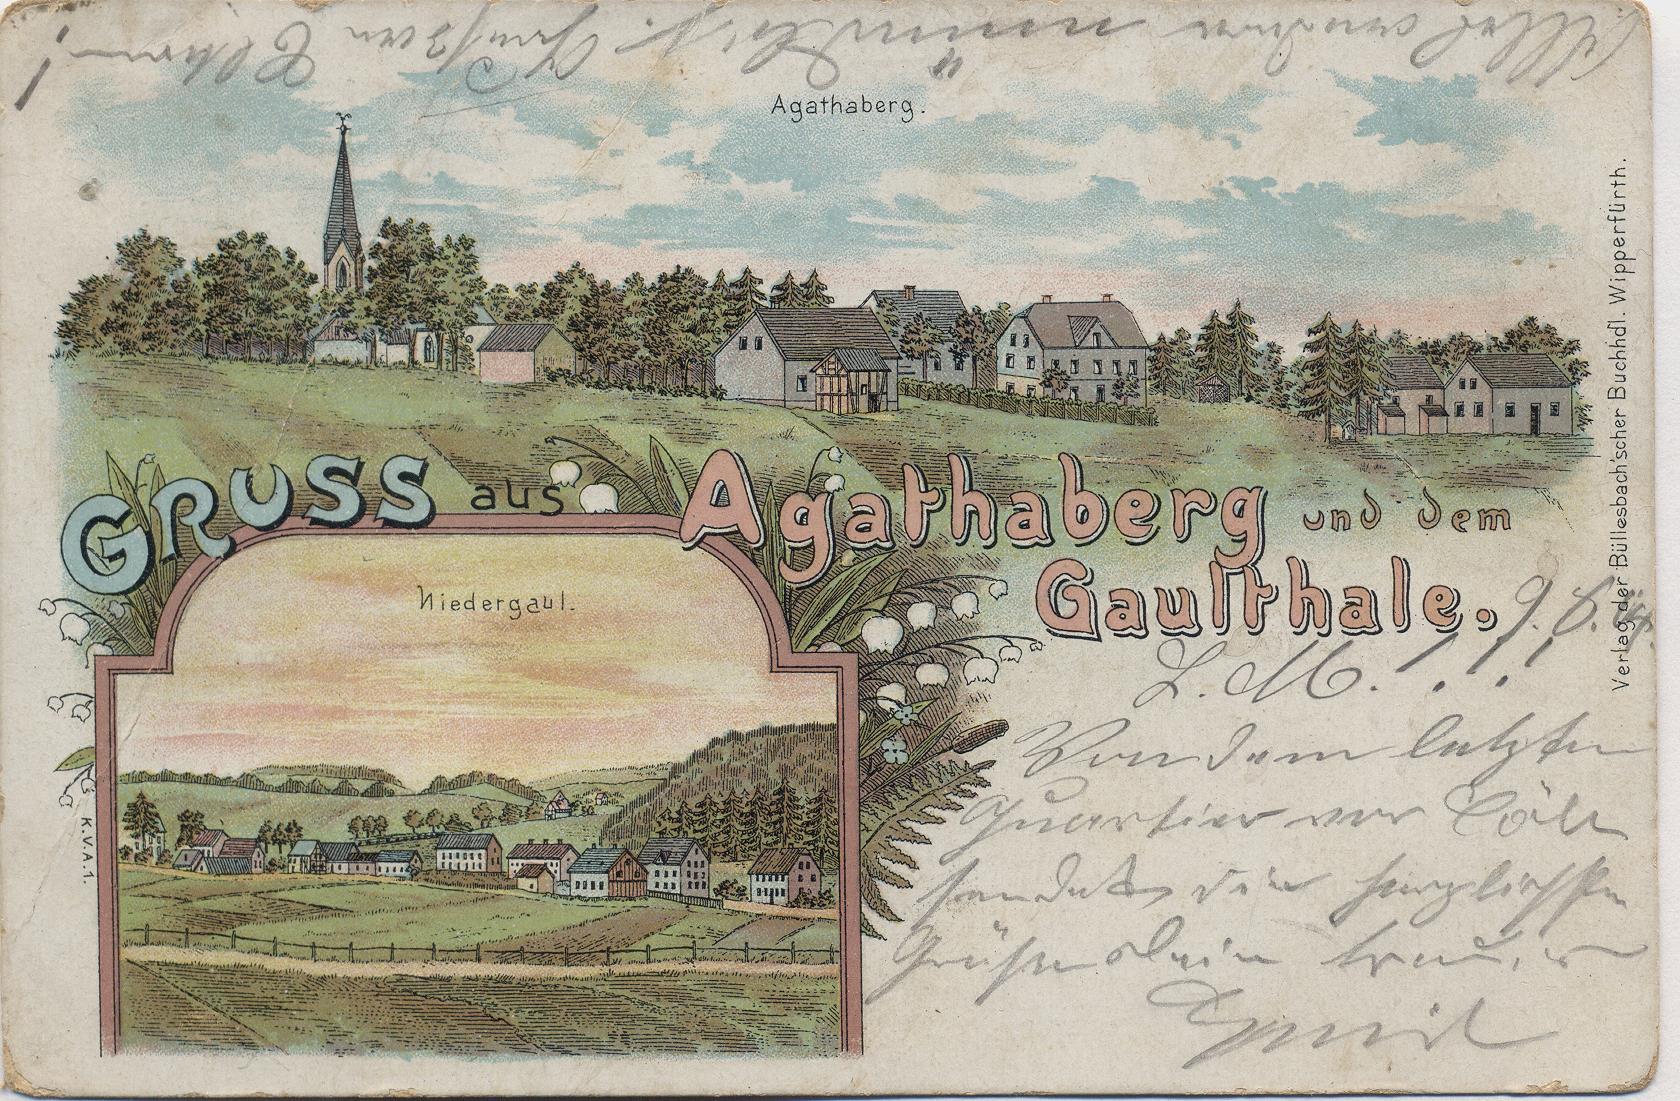 Agathaberg.
GRUSS aus Agathaberg und dem
Gaulthale.
Niedergaul.
K.V.A.1.
Verlag der Büllesbach'scher Buchhdl. Wipperfürth.
9. 6.
L. M.!!!
Von dem letzten
Quartier vor Cöln
sendet die herzlichsten
Grüße Dein